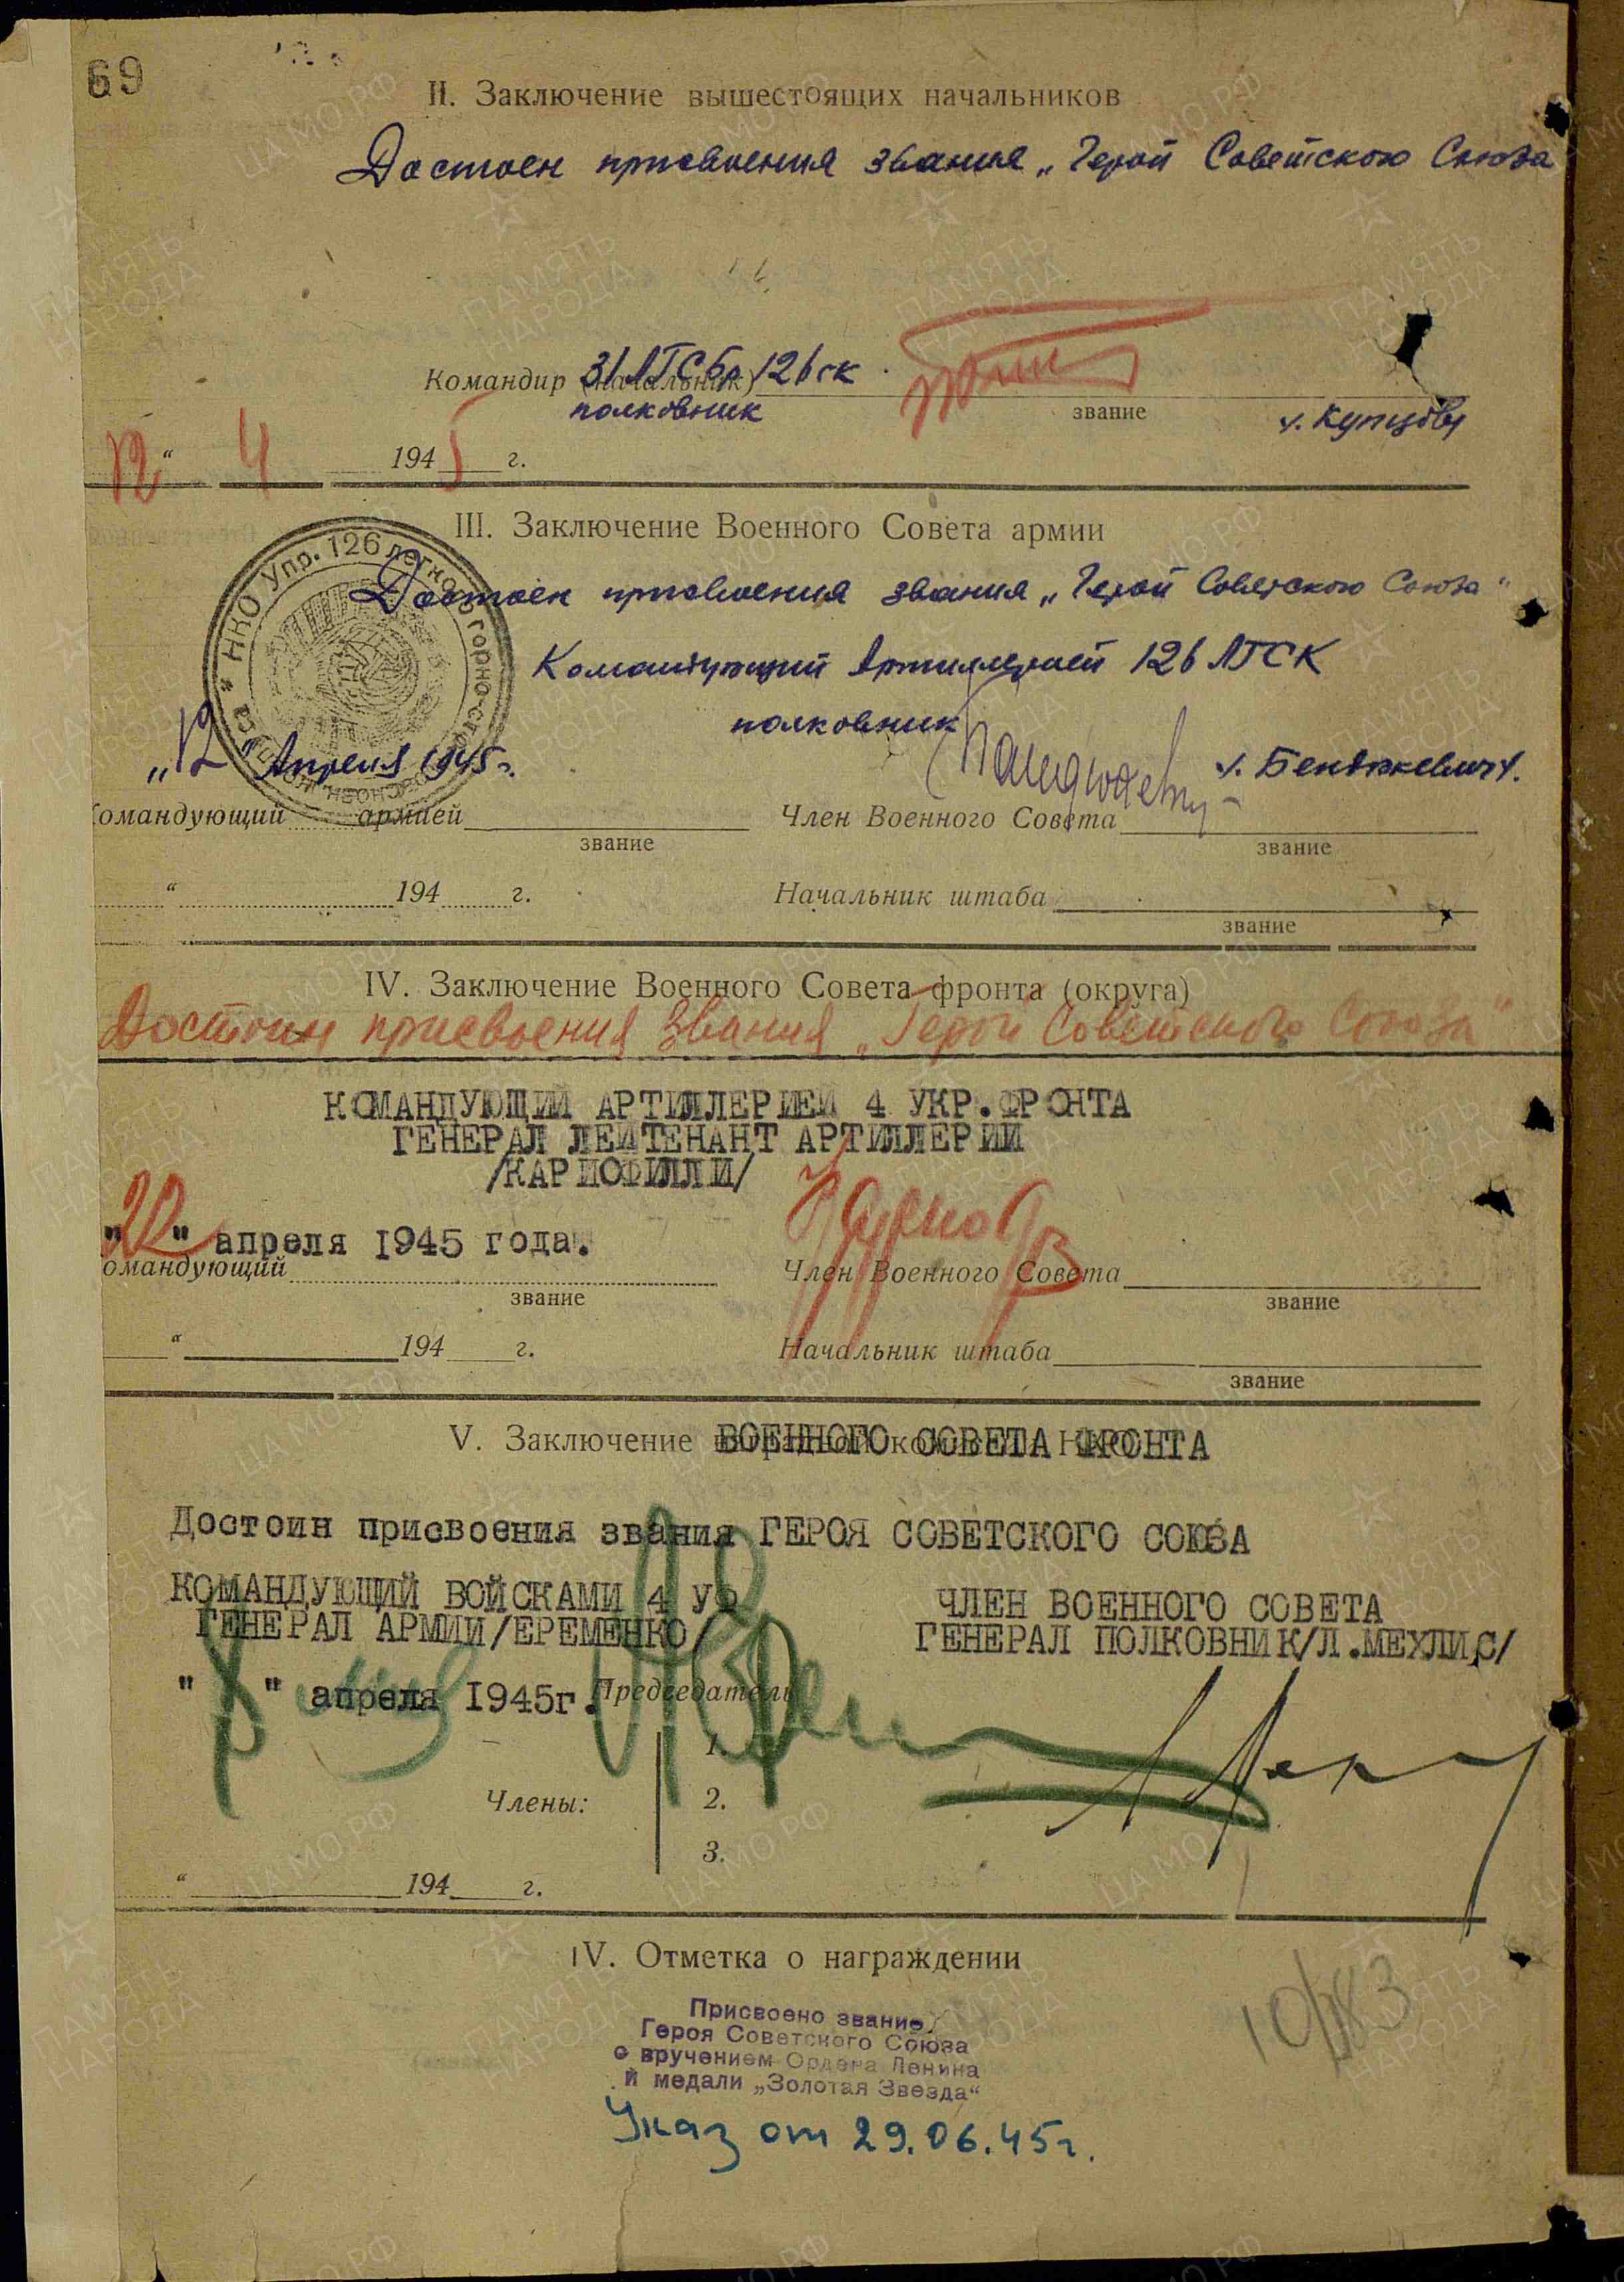 69
II. Заключение вышестоящих начальников
Достоен присвоения звания „Герой Советского Союза
Командир (начальник) 31 ЛГСбр 126 ск
полковник
звание
12 “ 4 1945 г.
III. Заключение Военного Совета армии
НКО Упр. 126 легкого горно-стр
Достоен присвоения звания „Герой Советского Союза“
Командующий Артиллерией 126 ЛГСК
полковник
„12“ Апреля 1945 г.
омандующий армией
Член Военного Совета
звание
звание
“ 194 г.
Начальник штаба
звание
IV. Заключение Военного Совета фронта (округа)
Достоин присвоения звания „Герой Советского Союза“
КОМАНДУЮЩИЙ АРТИЛЛЕРИЕЙ 4 УКР.ФРОНТА
ГЕНЕРАЛ ЛЕЙТЕНАНТ АРТИЛЛЕРИИ
/КАРИОФИЛЛИ/
"22" апреля 1945 года.
омандующий
Член Военного Совета
звание
звание
“ 194 г.
Начальник штаба
звание
V. Заключение ВОЕННОГО СОВЕТА ФРОНТА
Достоин присвоения звания ГЕРОЯ СОВЕТСКОГО СОЮЗА
КОМАНДУЮЩИЙ ВОЙСКАМИ 4 УФ
ГЕНЕРАЛ АРМИИ/ЕРЕМЕНКО/
ЧЛЕН ВОЕННОГО СОВЕТА
ГЕНЕРАЛ ПОЛКОВНИК/Л.МЕХЛИС/
" " апреля 1945г.
Председатель
1.
Члены:
2.
3.
“ 194 г.
IV. Отметка о награждении
Присвоено звание
Героя Советского Союза
с вручением Ордена Ленина
и медали „Золотая Звезда“
Указ от 29.06.45г.
ПАМЯТЬ НАРОДА
ЦА МО РФ